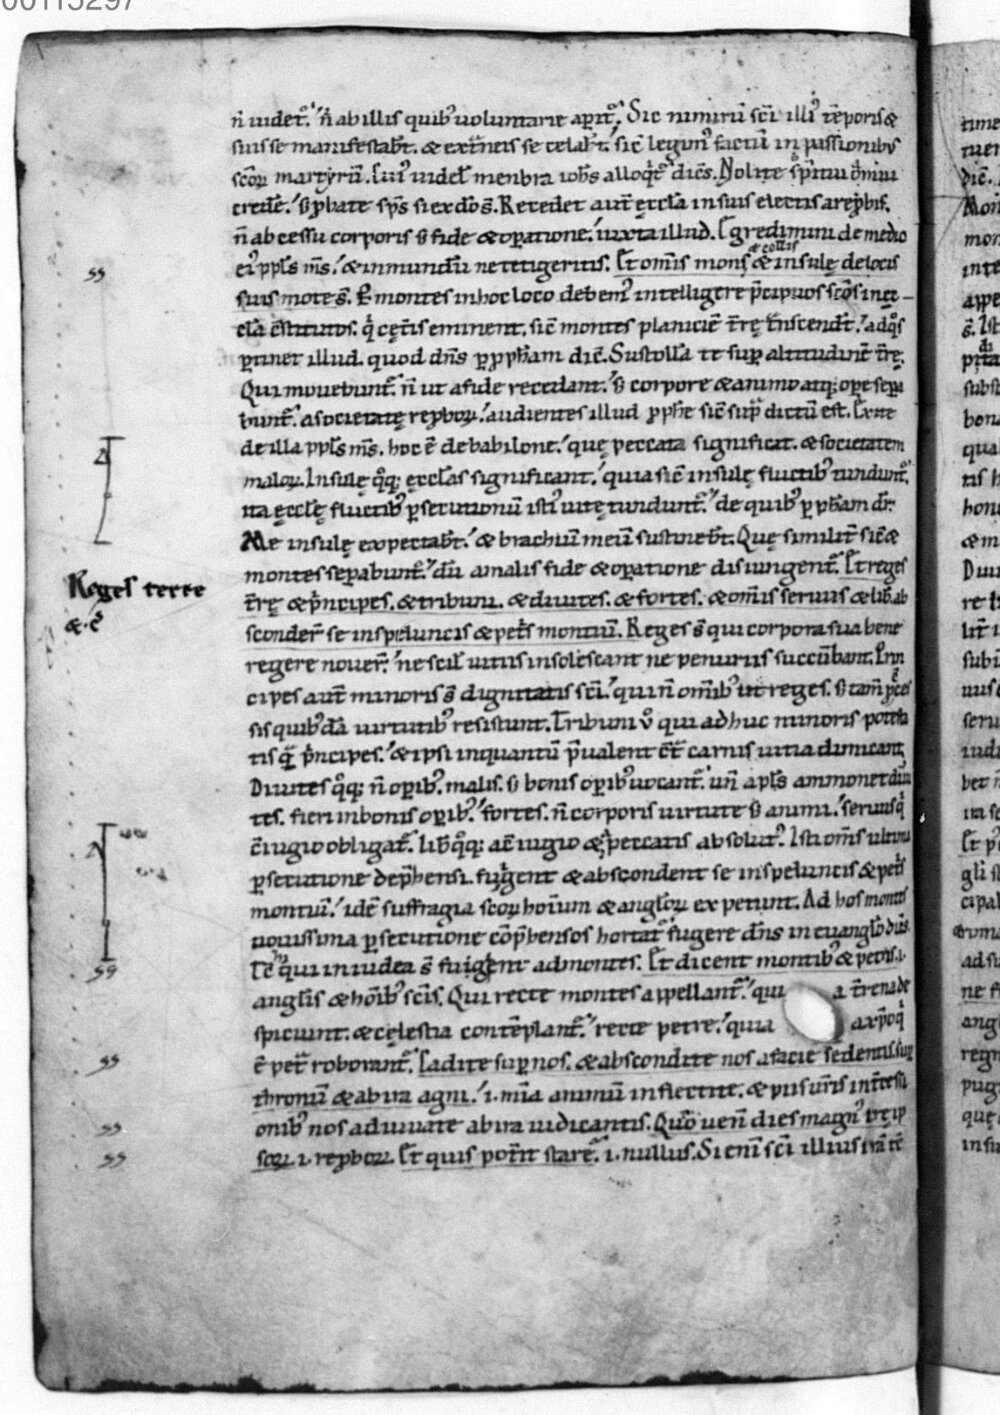 00115297
n̄ uidet᷒. n̄ ab illis quibꝰ uoluntarie aꝑit᷒. Sic nimirū sc̄i illiꝰ tēporis &
suis se manifestabt̄. & ext̄neis se celabt̄. sic̄ legimꝰ factū in passionibꝰ
sc̄oꝝ martyrū. Cuiꝰ uidel̄ menbra ioh̄s alloq̄t᷒ dicēs. Nolite sp̄itui om̄i
credēe. s; ꝓbate sp̄s si ex dō s̄. Recedet aut̄ ęccl̄a in suis electis a reꝓbis.
n̄ abcessu corporis s; fide & oꝑatione. iuxta illud. Egredimini de medio
eiꝰ ppl̄s m̄s. & inmundū ne tetigeritis. Et om̄is mons & collis & insulę de locis
suis mote s̄. Ꝑ montes in hoc loco debemꝰ intelligere p̄cipuos sc̄os in ęc-
cl̄a c̄stitutos. q̄ cęt̄is eminent. sic̄ montes planiciē t̄rę t̄nscendt̄. ad qͦs
ꝑtinet illud. quod dn̄s ꝑ ꝓph̄am dic̄. Sustolla te suꝑ altitudinē t̄rę.
Qui mouebunt᷒. n̄ ut a fide recedant. s; corpore & animo atq; oꝑe sepa
bunt᷒. a societatę reꝓboꝝ. audientes illud ꝓph̄e sic̄ sup̄ dictū est. Exite
de illa ppl̄s m̄s. hoc ē de babilone. quę peccata significat. & societatem
maloꝝ. Insulę qͦq; ęccl̄as significant. quia sic̄ insulę fluctibꝰ tundunt᷒.
ita ęccl̄ę fluctibꝰ ꝑsecutionū isti uitę tundunt᷒. de quibꝰ ꝑ ꝓph̄am dr̄.
Me insulę expectabt̄. & brachiū meū sustinebt̄. Quę similit̄ sic̄ &
montes seꝑabunt᷒. dū a malis fide & oꝑatione disiungent᷒. Et reges
t̄rę & p̄ncipes. & tribuni. & diuites. & fortes. & om̄is seruus & lib̄ ab
sconder̄ se in speluncis & pet̄s montiū. Reges s̄ qui corpora sua bene
regere nouer̄. ne scil̄ uitiis insolescant ne penuriis succūbant. Prin
cipes aut̄ minoris s̄ dignitatis sc̄i. qui n̄ om̄ibꝰ ut reges. s; tam̄ p̄ces
sis quibꝰdā uirtutibꝰ resistunt. Tribuni ū qui adhuc minoris potesta
tis q̄ p̄ncipes. & ipsi inquantū p̄ualent cͣ carnis uitia dimicant.
Diuites qͦq; n̄ oꝑibꝰ malis. s; bonis oꝑibꝰ uocant᷒. un̄ apl̄s ammonet diui
tes. fieri in bonis oꝑibꝰ. fortes. n̄ corporis uirtute s; animi. seruus q̄
c̄iugio obligat᷒. lib̄ qͦq; a c̄iugio & peccatis absolutꝰ. Isti om̄is ultima
ꝑsecutione dep̄hensi. fugient & abscondent se in speluncis & pet̄s
montiū. idē suffragia sc̄oꝝ hoīum & angl̄oꝝ expetunt. Ad hos montes
nouissima ꝑsecutione cōp̄hensos hortat᷒ fugere dn̄s in euangl̄o dicēs.
Tc̄ qui in iudea s̄ fugient ad montes. Et dicent montibꝰ & petris. i.
angl̄is & hoībꝰ sc̄is. Qui recte montes appellant᷒. qui a t̄rena de
spiciunt. & cęlestia contēplant᷒. recte petre. quia a xp̄o q̄
ē pet̄ roborant᷒. Cadite suꝑ nos. & abscondite nos a facie sedentis suꝑ
thronū & ab ira agni. i. mīa animū inflectite. & piis ur̄is int̄cessi
onibꝰ nos adiuuate ab ira iudicantis. Qm̄ uen̄ dies magnꝰ irę ip
soꝝ. i. reꝓboꝝ. Et quis pot̄it stare. i. nullus. Si eni sc̄i illius
ss
Reges terre
&. c̄
ss
ss
ss
ss